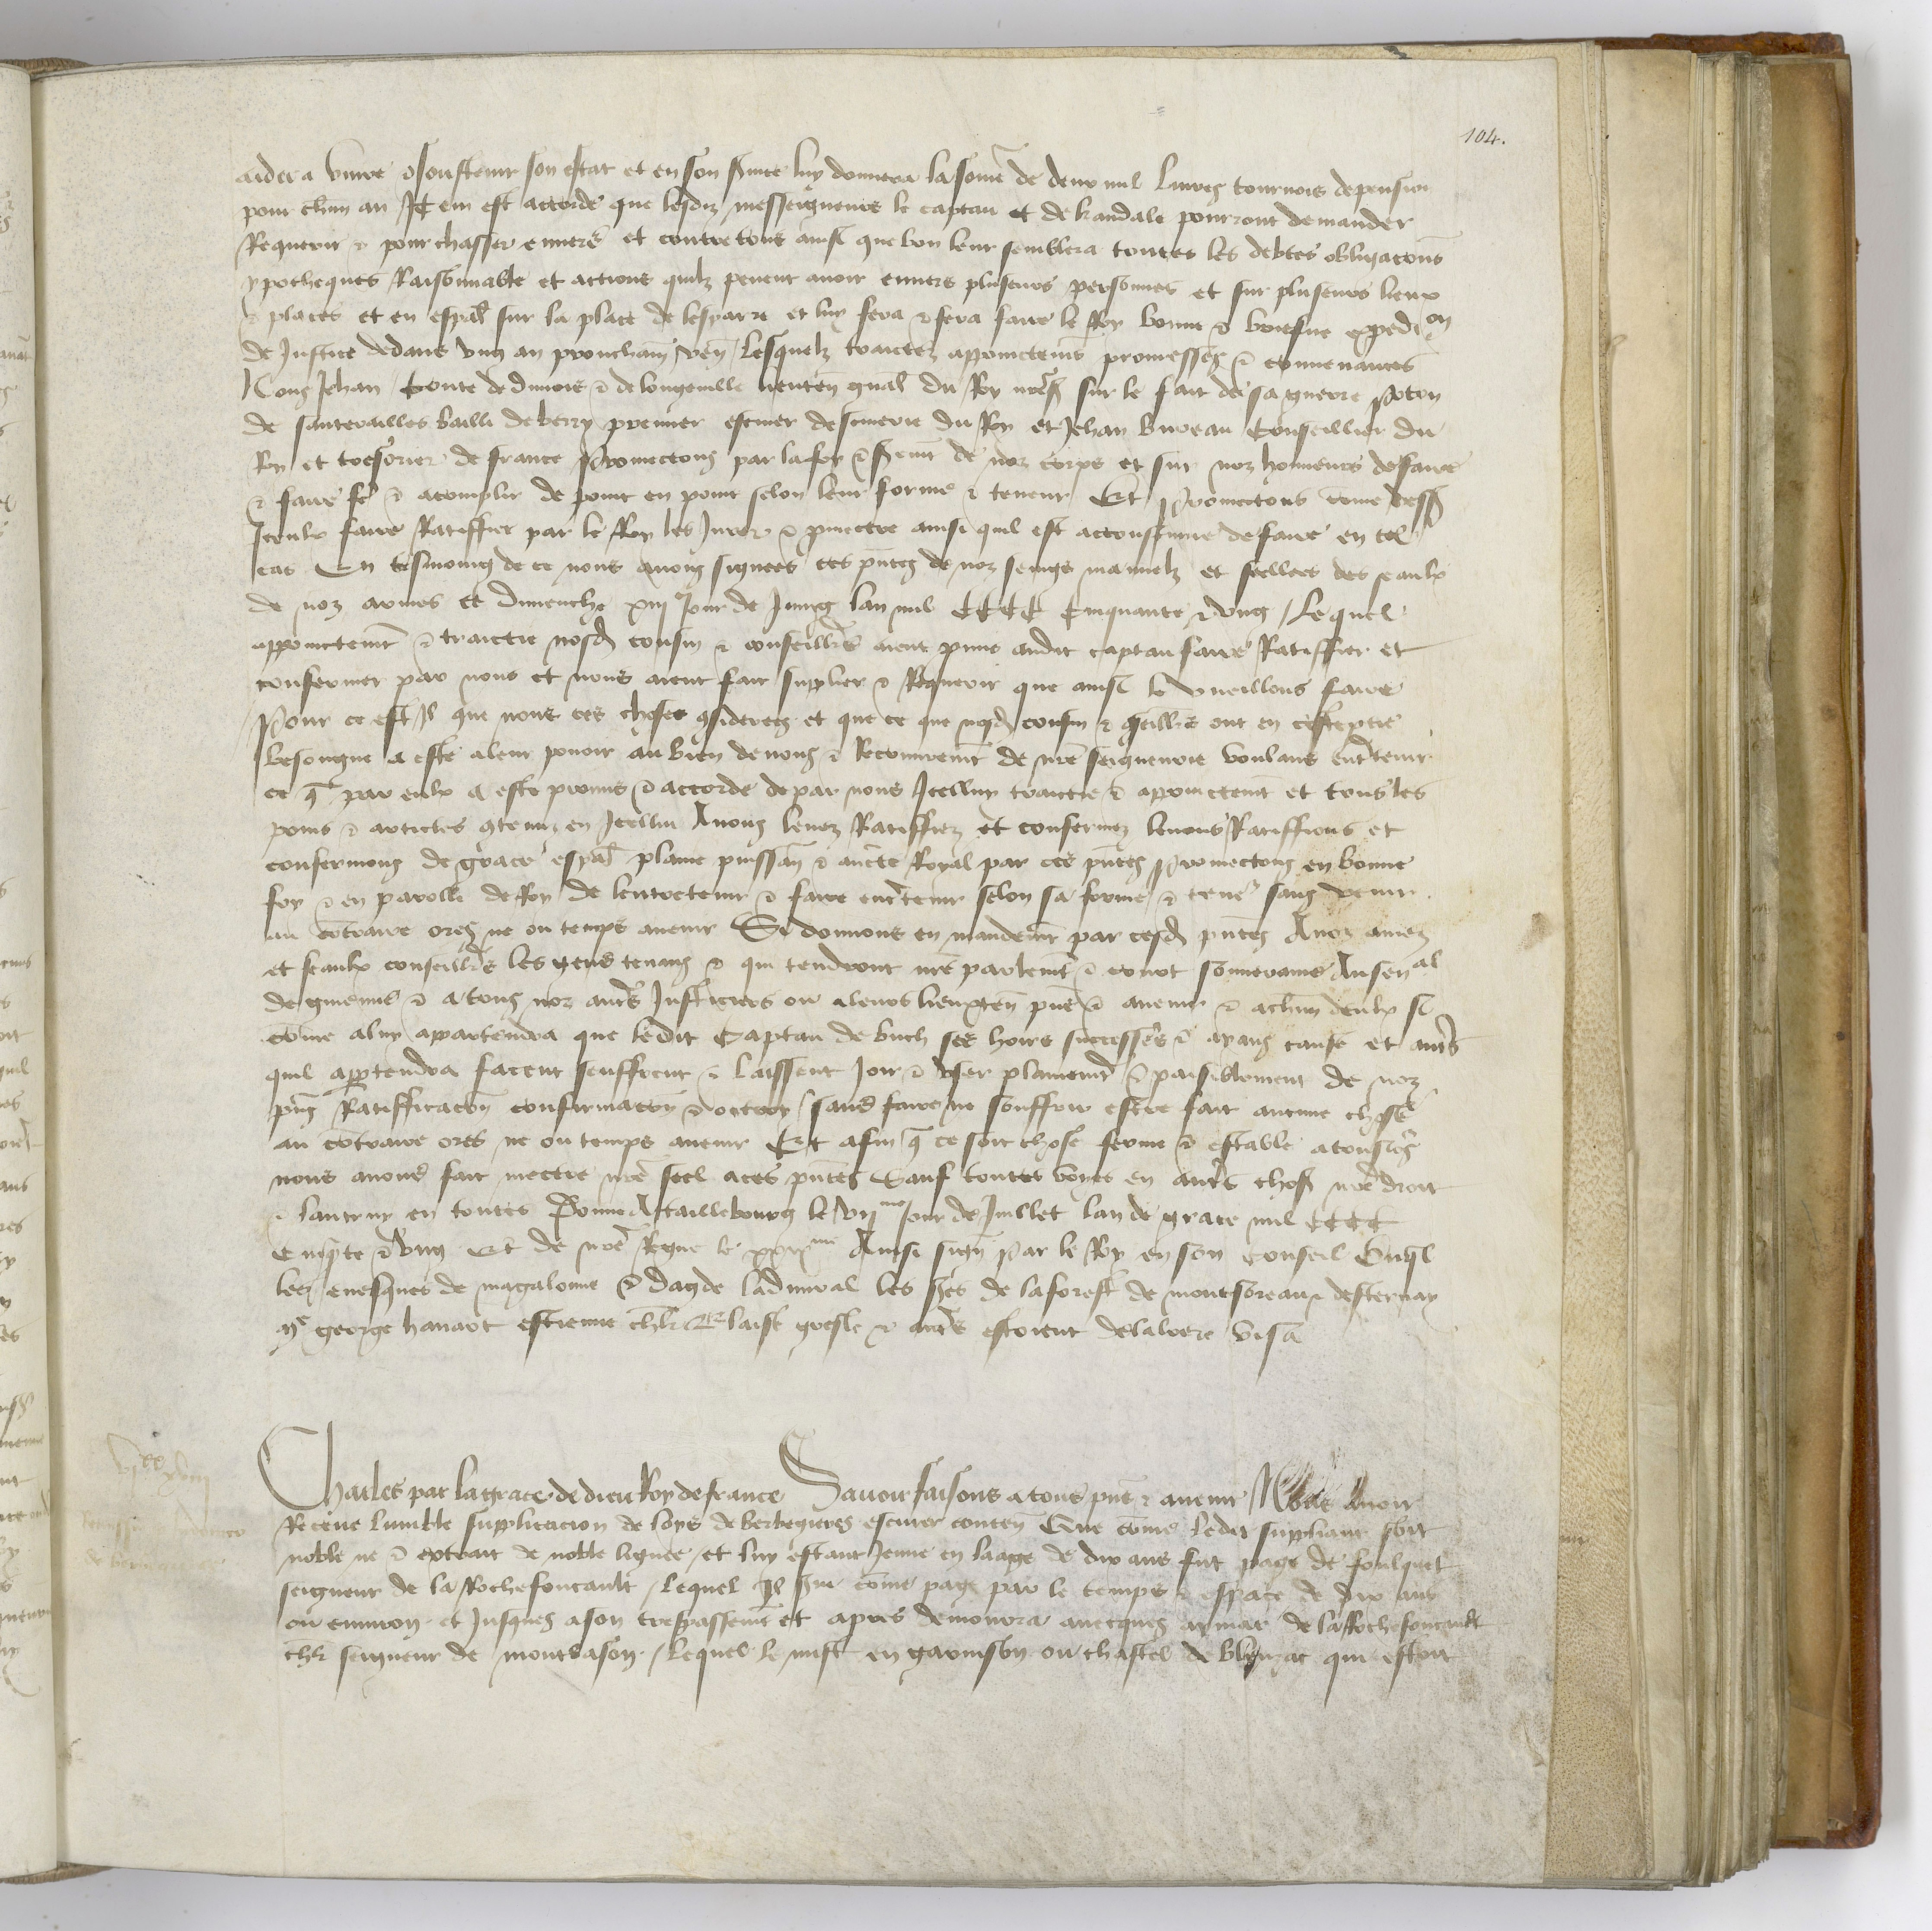 104.
aidera vivre & soustenir son estat et en son service luy donnera la some de deux mil livres tournois de pension
pour chun an Item est accorde que lesdiz messeigneurs le captau et de kandale pourront demander
Requerir & pourchasser envers et contre tous ainsi que bon leur semblera toutes les debtes obligacons
ypotheques Raisonnable et actions quilz pevent avoir envers pluseurs personnes et sur pluseurs lieux
& places et en espal sur la place de lesparre et luy fera & fera faire le Roy bonne & briefve expedicion
de Justice dedans ung an prouchain ven Lesquelz traictez appoinctemens promesses & convenances
Nous Jehan Conte de dunois & de longueville lieuten gnal du Roy nres sur le fait de sa guerre Poton
de santerailles bailli de berry premier escuier descuierie du Roy et Jehan Bureau Conseillier du
Roy et tresorier de france Promectons par la foy & serment de noz corps et sur noz honneurs de faire
& faire fe & acomplir de point en point selon leur forme & teneur Et promectons come dess
Iceulx faire Ratiffier par le Roy les Jurer & pmectre ainsi quil est acoustume de faire en tel
cas En tesmoing de ce nous avons signees ces pntes de noz seings manuelz et seellees des seaulx
de noz armes ce dimenche xiij Jour de Juing lan mil CCCC Cinquante & ung Lequel
appoinctemt & traictie nosd cousin & conseillrs aient pmis audit captau faire Ratiffier et
confermer par nous et nous aient fait supplier & Requerir que ainsi le vueillons faire
Pour ce est Il que nous ces choses 9siderees et que ce que nosd cousin & 9seillrs ont en ceste ptie
besongne a este a leur povoir au bien de nous & Recouvremt de nre seigneurie voulans entretenir
ce q par eulx a este promis & accorde de par nous Icelluy traictie & appoinctemt et tous les
poins & articles 9tenuz en Icellui Avons louez Ratiffiez et confermez louons Ratiffions et
confermons de grace espal plaine puissan & aucte Royal par ces pntes Promectons en bonne
foy & en parolle de Roy de lentretenir & faire entretenir selon sa forme & tenr sans venir
au contraire ores ne ou temps avenir Si donnons en mandemt par cesd pntes A noz amez
et feaulx conseillrs les gens tenans & qui tendront nre parlemt & court souveraine
de guienne & a tous noz autrs Justiciers ou a leurs lieuxten pns & avenir & a chun deulx si
come a luy appartendra que ledit Captau de buch ses hoirs successrs & ayans cause et autrs
quil appartendra facent seuffrent & laissent Joir & user plainemt & paisiblement de noz
pns Ratifficacon confirmacon & octroy sans faire ne souffrir estre fait aucune chose
au contraire ores ne ou temps avenir Et afin q ce soit chose ferme & estable a tousjrs
nous avons fait mectre nre seel a ces pntes Sauf toutes voyes en autrs chos nre droit
& lautruy en toutes Donne A taillebourg le me Jour de Juillet lan de grace mil CCCC
Cinqte & ung Et de nre Regne le xxixme Ainsi sign Par le Roy en son Conseil Ouql
les evesques de magalonne & dagde ladmiral les srs de la forest de monsoreau & desternay
me george havart estienne chlr & autrs estoient delaloere Visa
Charles par la grace de dieu Roy de france Savoir faisons a tous pns & avenir Nous Avoir
Receue lumble supplicacion de loys de berbezieres escuier conten Que come ledit suppliant soit
noble ne & extrait de noble lignee et luy estant Jeune en laage de dix ans fut page de foulquet
seigneur de la Rochefoucault Lequel Il servi come page par le temps & espace de dix ans
ou environ et Jusques a son trespassemt et apres demoura avecques aymar de la Rochefoucault
chlr seigneur de montbason Lequel le mist en garnison ou chastel de blanzac qui estoit